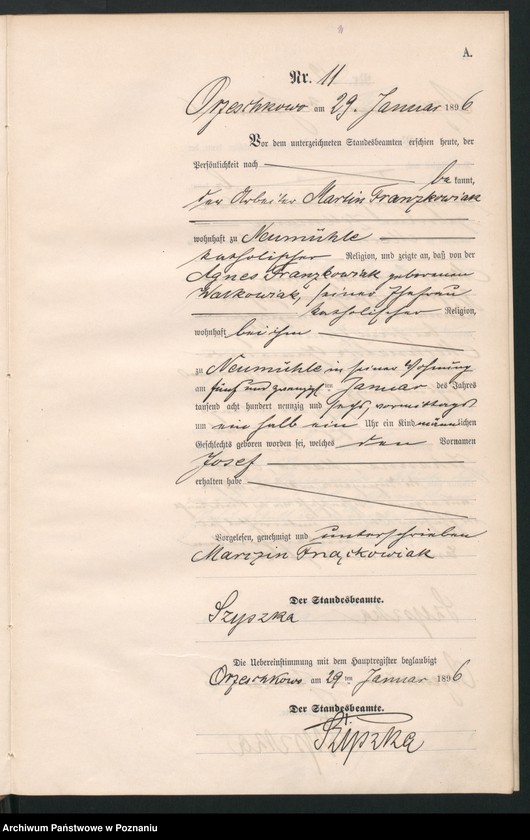 A.
Nr. 11
Orzeschkowo am 29. Januar 1896
Vor dem unterzeichneten Standesbeamten erschien heute, der
Persönlichkeit nach
be kannt,
der Arbeiter Martin Franzkowiak
wohnhaft zu Neumühle
katholischer Religion, und zeigte an, daß von der
Agnes Franzkowiak geborenen
Walkowiak, seiner Ehefrau
katholischer Religion,
wohnhaft bei ihm
zu Neumühle in seiner Wohnung
am fünf und zwanzigsten Januar des Jahres
tausend acht hundert neunzig und sechs, vormittags
um ein halb ein Uhr ein Kind männlichen
Geschlechts geboren worden sei, welches den Vornamen
Josef
erhalten habe
Vorgelesen, genehmigt und unterschrieben
Marczin Frąckowiak
Der Standesbeamte.
Szyszka
Die Uebereinstimmung mit dem Hauptregister beglaubigt
Orzeschkowo am 29 ten Januar 1896
Der Standesbeamte.
Szyszka
Archiwum Państwowe w Poznaniu